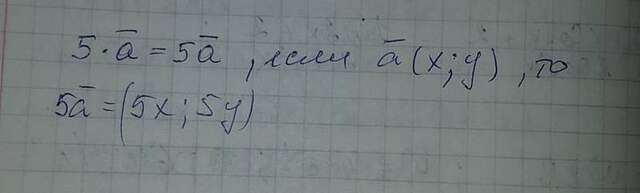 5·a̅ = 5a̅, если a̅(x;y), то
5a̅ = (5x; 5y)